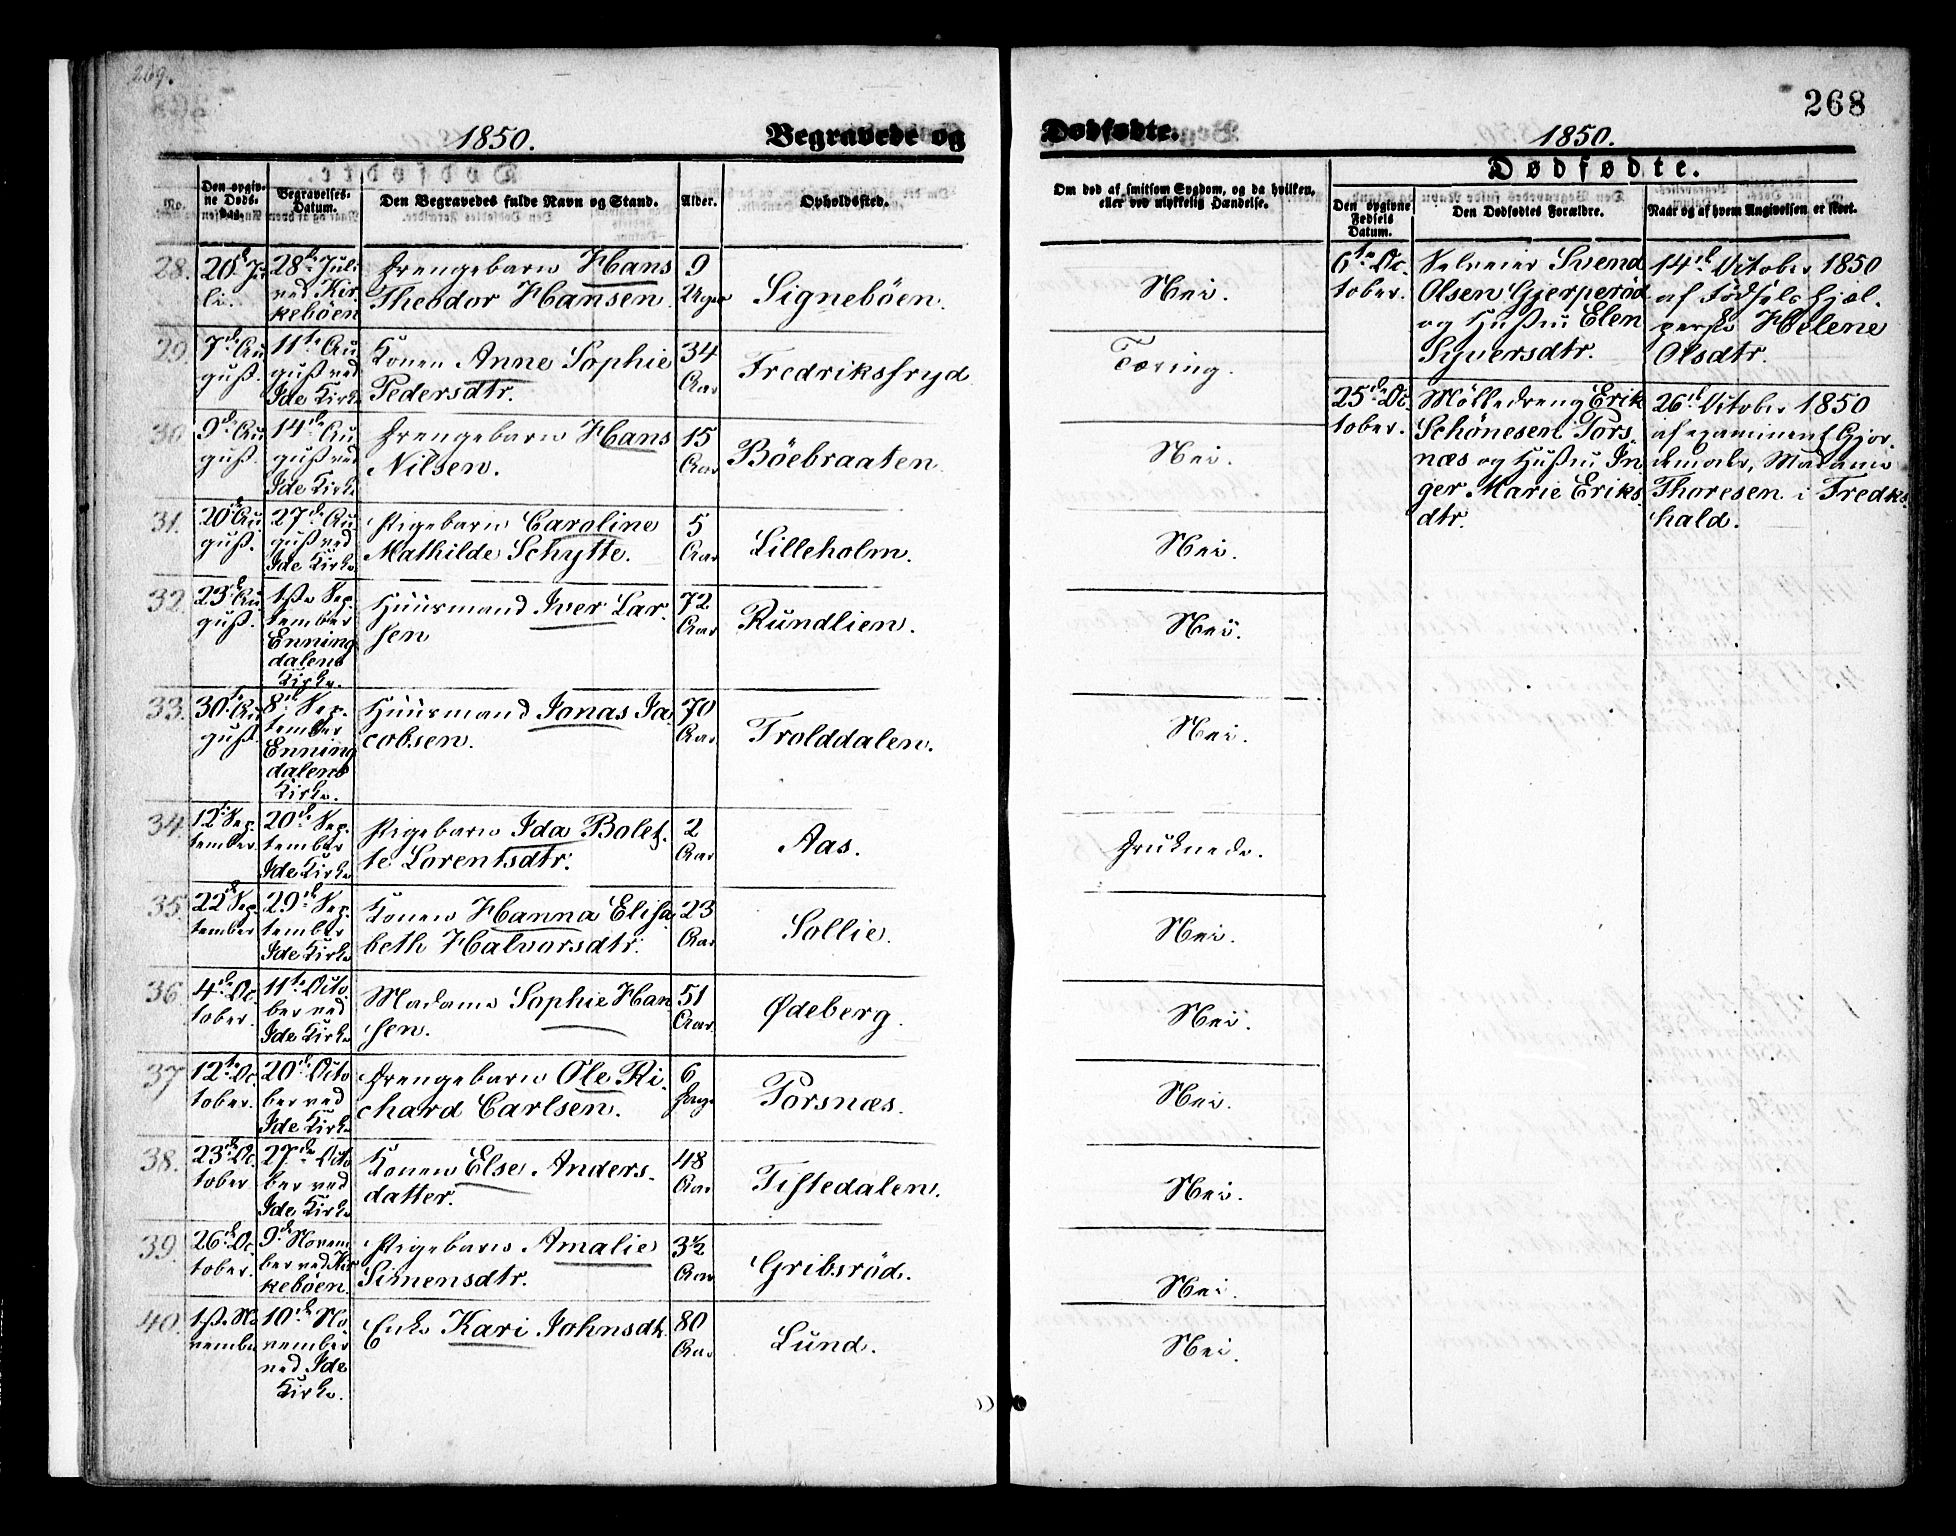 269.
268
1850.
Begravede og
Dødfødte.
1850.
No.
Den opgiv-
ne Døds-
dag.
Begravelses-
Datum.
Den Begravedes fulde Navn og Stand.
Alder.
Opholdssted.
Om død af smitsom Sygdom, og da hvilken,
eller ved ulykkelig Hændelse.
Dødfødte.
Den opgivne
Fødsels
Datum.
Den Dødfødtes Forældre.
Naar og af hvem Angivelsen er skeet.
28.
20de Ju-
li.
28de Juli
ved Kir-
kebøen
Drengebarn Hans
Theodor Hansen.
9
Uger
Signebøen.
Nei.
29
7de Au
gust.
11te Au
gust ved
Ide Kirke
Konen Anne Sophie
Pedersdtr.
34
Aar
Fredriksfryd
Tæring.
30
9de Au
gust.
14de Au
gust ved
Ide Kirke
Drengebarn Hans
Nilsen.
15
Aar
Böebraaten.
Nei.
31.
20de Au
gust.
27de Au
gust ved
Ide Kirke
Pigebarn Caroline
Mathilde Schytte.
5
Aar
Lilleholm.
Nei.
32.
23de Au
gust.
1ste Sep.
tember
Enning
dalens
Kirke.
Huusmand Iver Lar-
sen
72
Aar
Rundlien.
Nei.
33.
30te Au
gust.
8de Sep.
tember
Enning
dalens
Kirke.
Huusmand Jonas Ja
cobsen.
70
Aar
Trolddalen.
Nei.
34
12te Sep.
tember.
20de Sep.
tember
Ide Kirke
Pigebarn Ida Bolet-
te Lorentsdtr.
2
Aar
Aas.
Druknede.
35.
22de Sep.
tember
29de Sep.
tember
Ide Kirke
Konen Hanna Elisa
beth Halvorsdtr.
23
Aar
Sollie.
Nei.
36
4de Oc.
tober.
11te Octo
ber ved
Ide Kirke
Madame Sophie Han
sen.
51
Aar.
Ødeberg.
Nei.
37
12te Oc.
tober.
20de Octo
ber ved
Ide Kirke
Drengebarn Ole Ri-
chard Carlsen.
6
Dage
Torsnæs.
Nei.
38.
23de Oc.
tober
27de Octo
ber ved
Ide Kirke
Konen Else Anders-
datter.
48
Aar
Tistedalen.
Nei.
39.
26de Oc.
tober.
9de Novem
ber ved Kir
kebøen.
Pigebarn Amalie
Simensdtr.
3½
Aar
Gribsröd.
Nei.
40.
1ste No
vember
10de No.
vember
ved Ide
Kirke.
Enke Kari Johnsdtr.
80
Aar
Lund.
Nei.
6te Oc.
tober.
Selveier Svend
Olsen Gjerperöd
og Hustru Elen
Syversdtr.
14de October 1850
af Födselshjæl-
perske Helene
Olsdtr.
25de Oc.
tober.
Mölledreng Erik
Schönesen Tors-
næs og Hustru In
ger Marie Eriks
dtr.
26de October 1850
af examineret Gjor-
demoder, Madame
Thoresen i Fredks
hald.